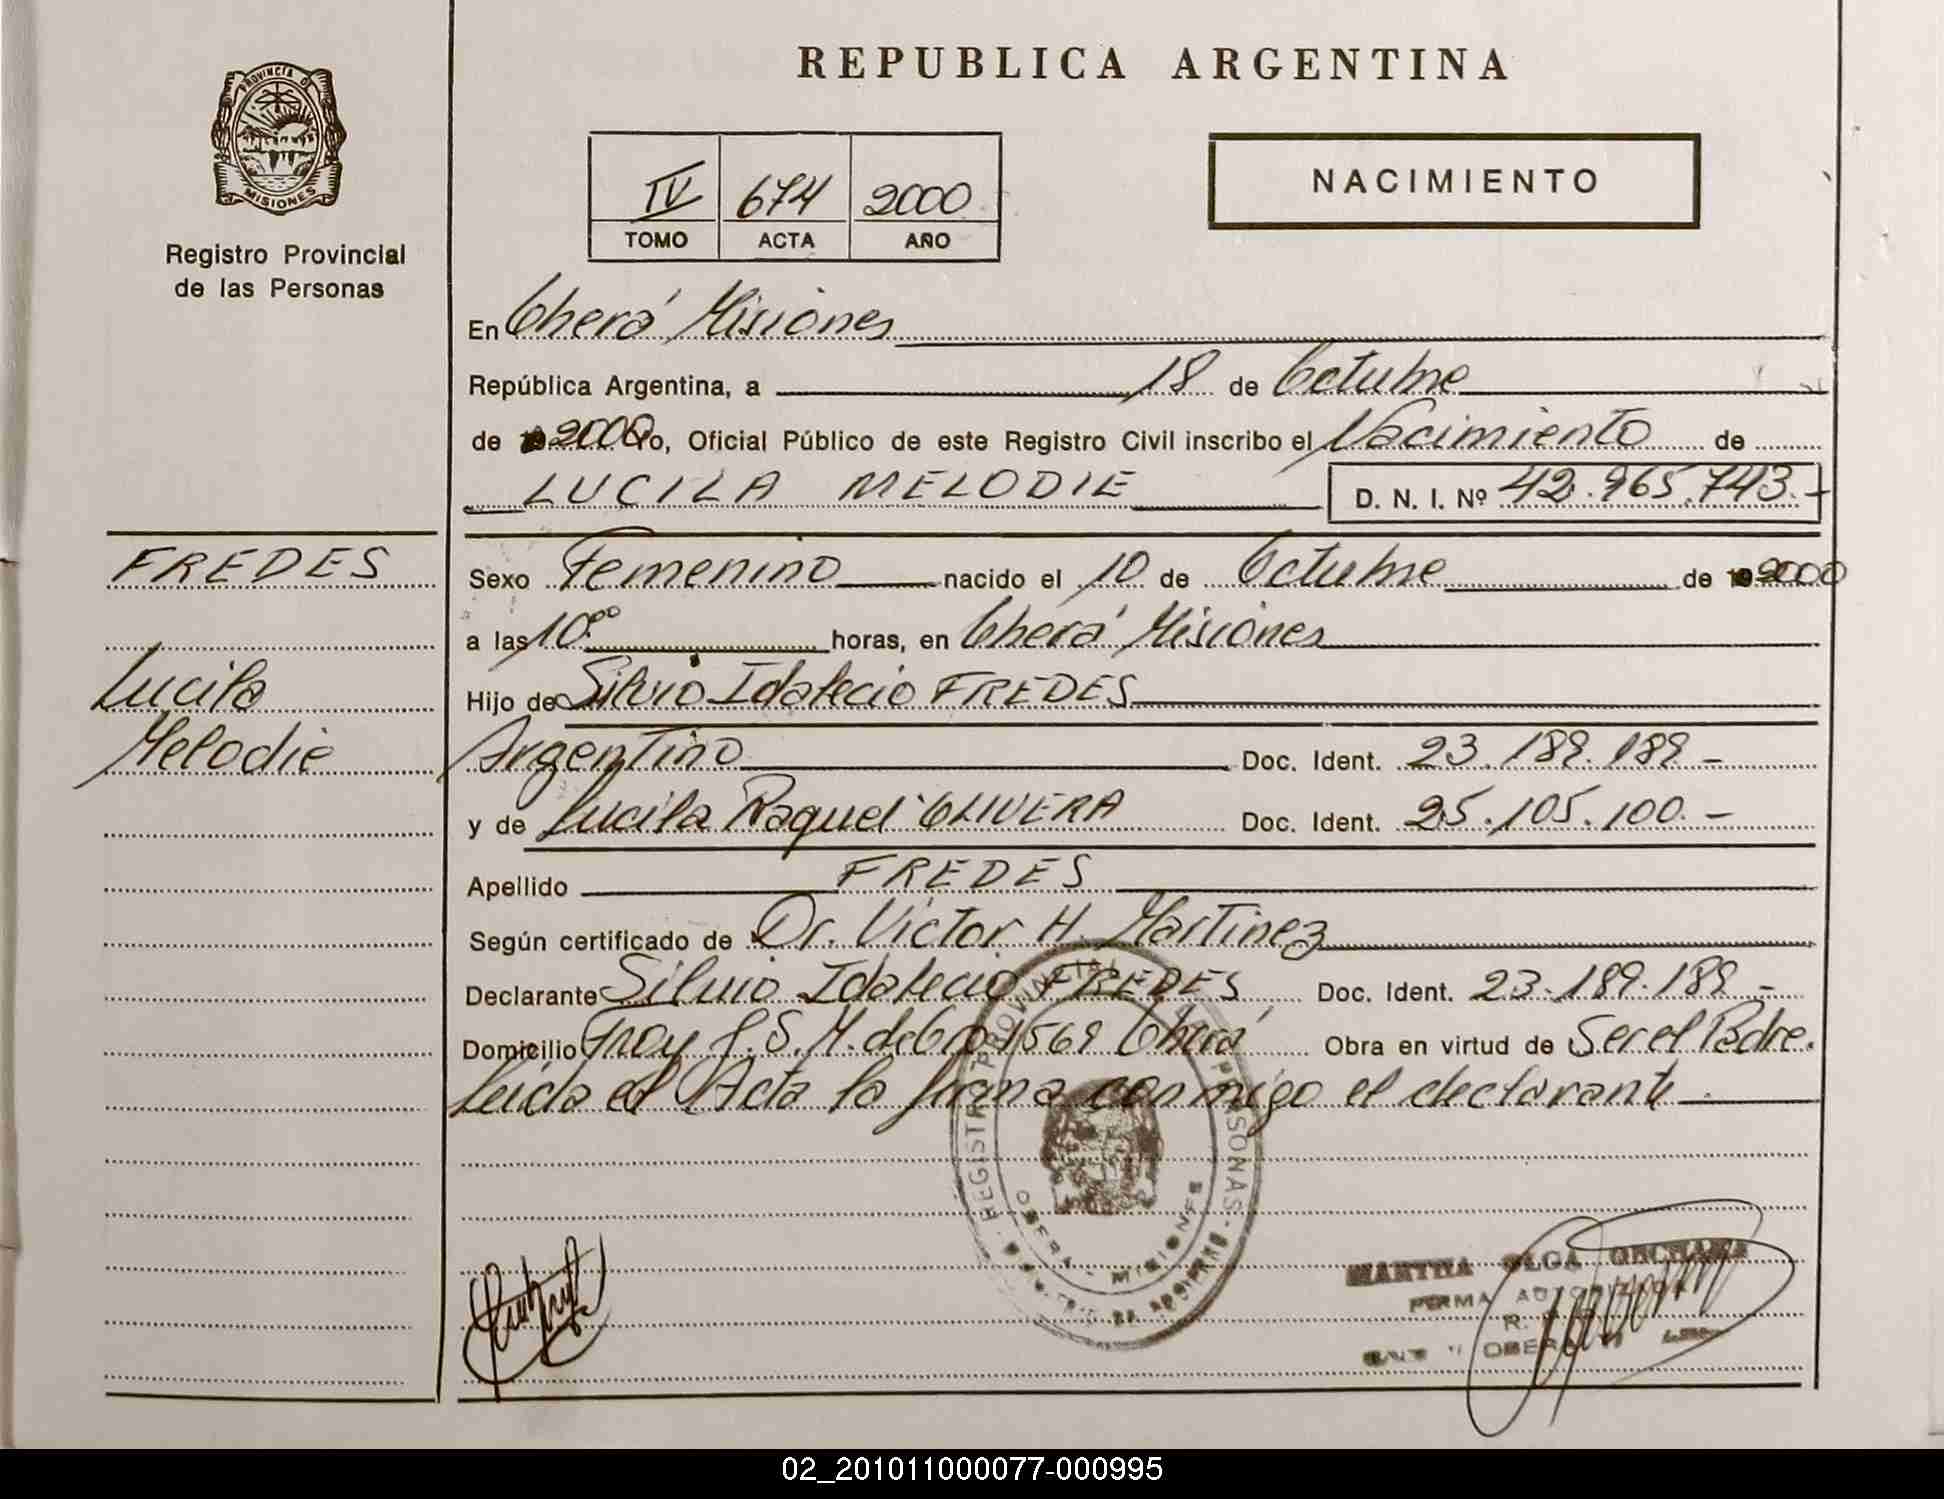 REPUBLICA ARGENTINA
PROVINCIA DE
MISIONES
Registro Provincial
de las Personas
IV 674 2000
TOMO ACTA AÑO
NACIMIENTO
En Oberá Misiones
República Argentina, a 18 de Octubre
de 2000 Yo, Oficial Público de este Registro Civil inscribo el Nacimiento de
LUCILA MELODIE D. N. I. Nº 42.965.743.-
FREDES
Lucila
Melodie
Sexo Femenino nacido el 10 de Octubre de 2000
a las 10:00 horas, en Oberá Misiones
Hijo de Silvio Idalecio FREDES
Argentino Doc. Ident. 23.189.189-
y de Lucila Raquel OLIVERA Doc. Ident. 25.105.100.-
Apellido FREDES
Según certificado de Dr. Victor H. Martinez
Declarante Silvio Idalecio FREDES Doc. Ident. 23.189.189-
Domicilio Fray J. S. M. de Oro 1569 Oberá Obra en virtud de Ser el Padre.
Leida el Acta la firma conmigo el declarante.
REGISTRO PROVINCIAL DE LAS PERSONAS
OBERA - MISIONES
MARTHA OLGA
FIRMA AUTORIZADA
OBERA
02_201011000077-000995